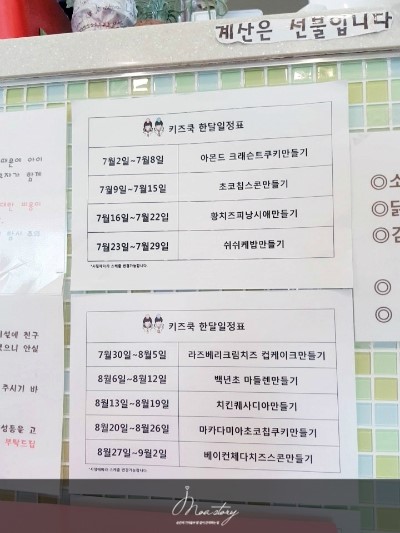 계산은 선물입니다
키즈쿡 한달일정표
7월2일~7월8일 아몬드 크래슨트쿠키만들기
7월9일~7월15일 초코칩스콘만들기
7월16일~7월22일 황치즈피낭시애만들기
7월23일~7월29일 쉬쉬케밥만들기
키즈쿡 한달일정표
7월30일~8월5일 라즈베리크림치즈 컵케이크만들기
8월6일~8월12일 백년초 마들렌만들기
8월13일~8월19일 치킨퀘사디아만들기
8월20일~8월26일 마카다미아초코칩쿠키만들기
8월27일~9월2일 베이컨체다치즈스콘만들기
주시기 바
부탁드립
◎소
◎닭
◎김
◎
◎
Moastory